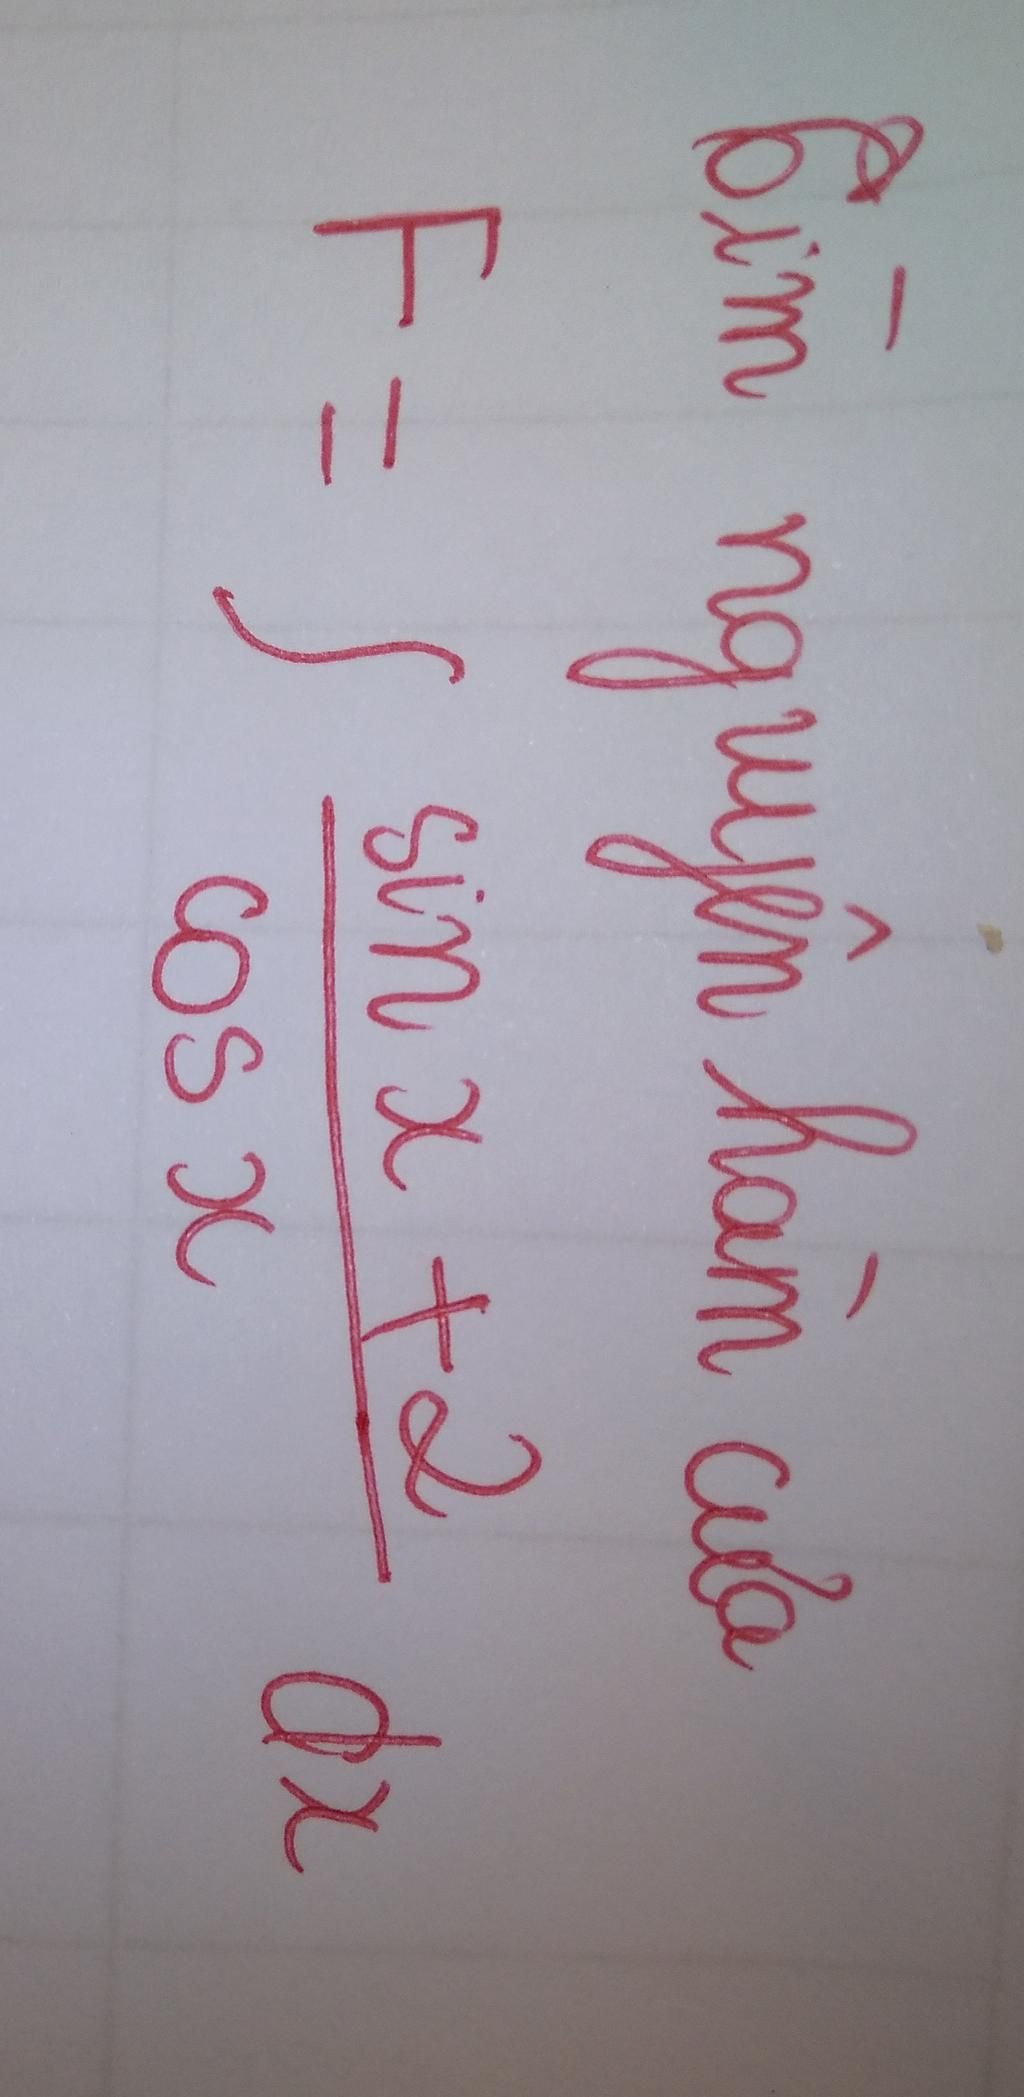 Tìm nguyên hàm của
F = ∫ (sin x + 2) / (cos x) dx